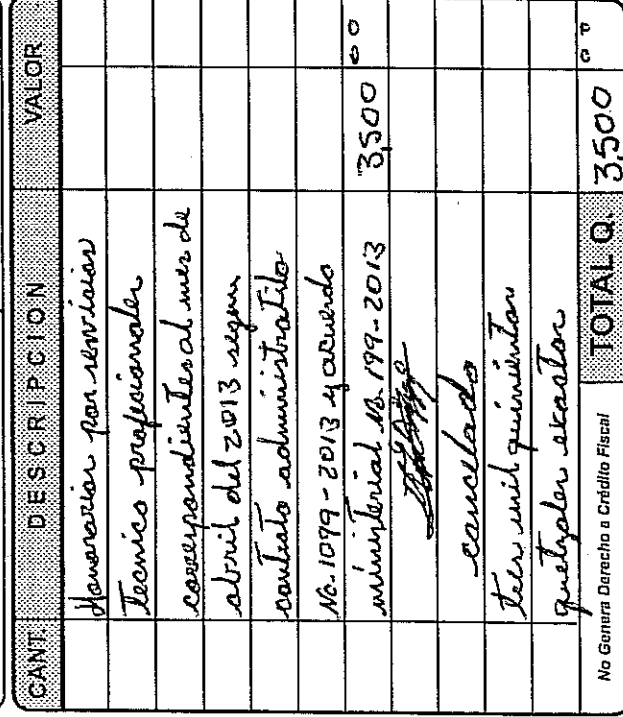 CANT. DESCRIPCION VALOR
Honorarios por servicios
Tecnico profesionales
correspondientes al mes de
abril del 2013 segun
contrato administrativo
No. 1099-2013 y acuerdo
ministerial No. 199-2013 3,500 00
cancelado
tres mil quinientos
quetzales exactos
No Genera Derecho a Crédito Fiscal TOTAL Q. 3,500 00